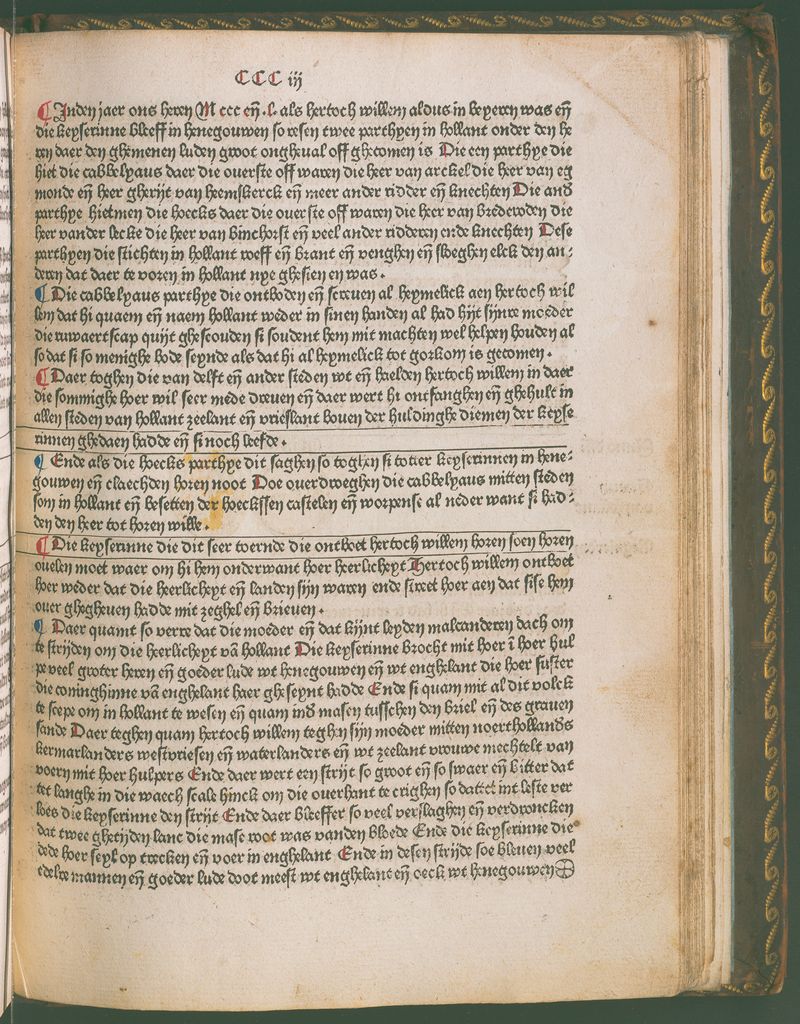 CCC iij
¶ Inden jaer ons heren M ccc eñ .l. als hertoch willem aldus in beyeren was eñ
die keyserinne bleeff in henegouwen so resen twee parthyen in hollant onder den he
ren daer den ghemenen luden groot ongheual off ghecomen is Die een parthye die
hiet die cabbelyaus daer die ouerste off waren die heer van arckel die heer van eg
monde eñ heer gherijt van heemskerck eñ meer ander ridder eñ knechten Die and
parthye hietmen die hoecks daer die ouerste off waren die heer van brederoden die
heer vander lecke die heer van binchorst eñ veel ander ridderen ende knechten Dese
parthyen die stichten in hollant roeff eñ brant eñ venghen eñ sloeghen elck den an⸗
deren dat daer te voren in hollant nye ghesien en was.
¶ Die cabbelyaus parthye die ontboden eñ screuen al heymelick aen hertoch wil
lem dat hi quaem eñ naem hollant weder in sinen handen al had hijt sijnre moeder
die ruwaertscap quijt ghescouden si soudent hem mit machten wel helpen houden al
so dat si so menighe bode seynde als dat hi al heymelick tot gorkom is gecomen.
¶ Daer toghen die van delft eñ ander steden wt eñ haelden hertoch willem in daer
die sommighe hoer wil seer mede dreuen eñ daer wert hi ontfanghen eñ ghehult in
allen steden van hollant zeelant eñ vrieslant bouen der huldinghe diemen der keyse
rinnen ghedaen hadde eñ si noch leefde.
¶ Ende als die hoecks parthye dit saghen so toghen si totter keyserinnen in hene⸗
gouwen eñ claechden horen noot Doe ouerdroeghen die cabbelyaus mitten steden
som in hollant eñ besetten der hoeckssen castelen eñ worpense al neder want si had⸗
den den heer tot horen wille.
¶ Die keyserinne die dit seer toernde die ontboet hertoch willem horen soen horen
ouelen moet waer om hi hem onderwant hoer heerlicheyt Hertoch willem ontboet
hoer weder dat die heerlicheyt eñ landen sijn waren ende screet hoer aen dat sise hem
ouer ghegheuen hadde mit zeghel eñ brieuen.
¶ Daer quamt so verre dat die moeder eñ dat kijnt leyden malcanderen dach om
te strijden om die heerlicheyt vā hollant Die keyserinne brocht mit hoer ī hoer hul
pe veel groter heren eñ goeder lude wt henegouwen eñ wt enghelant die hoer suster
die coninghinne vā enghelant haer gheseynt hadde Ende si quam mit al dit volck
te scepe om in hollant te wesen eñ quam ind masen tusschen den briel eñ des grauen
sande Daer teghen quam hertoch willem teghen sijn moeder mitten noerthollands
kermarlanders westvriesen eñ waterlanders eñ wt zeelant vrouwe mechtelt van
voern mit hoer hulpers Ende daer wert een strijt so groot eñ so swaer eñ bitter dat
tet langhe in die waech scale hinck om die ouerhant te crighen so dattet int leste ver
loes die keyserinne den strijt Ende daer bleeffer so veel verslaghen eñ verdroncken
dat twee ghetijden lanc die mase root was vanden bloede Ende die keyserinne die
dede hoer seyl op trecken eñ voer in enghelant Ende in desen strijde soe bleuen veel
edelre mannen eñ goeder lude doot meest wt enghelant eñ oeck wt henegouwen